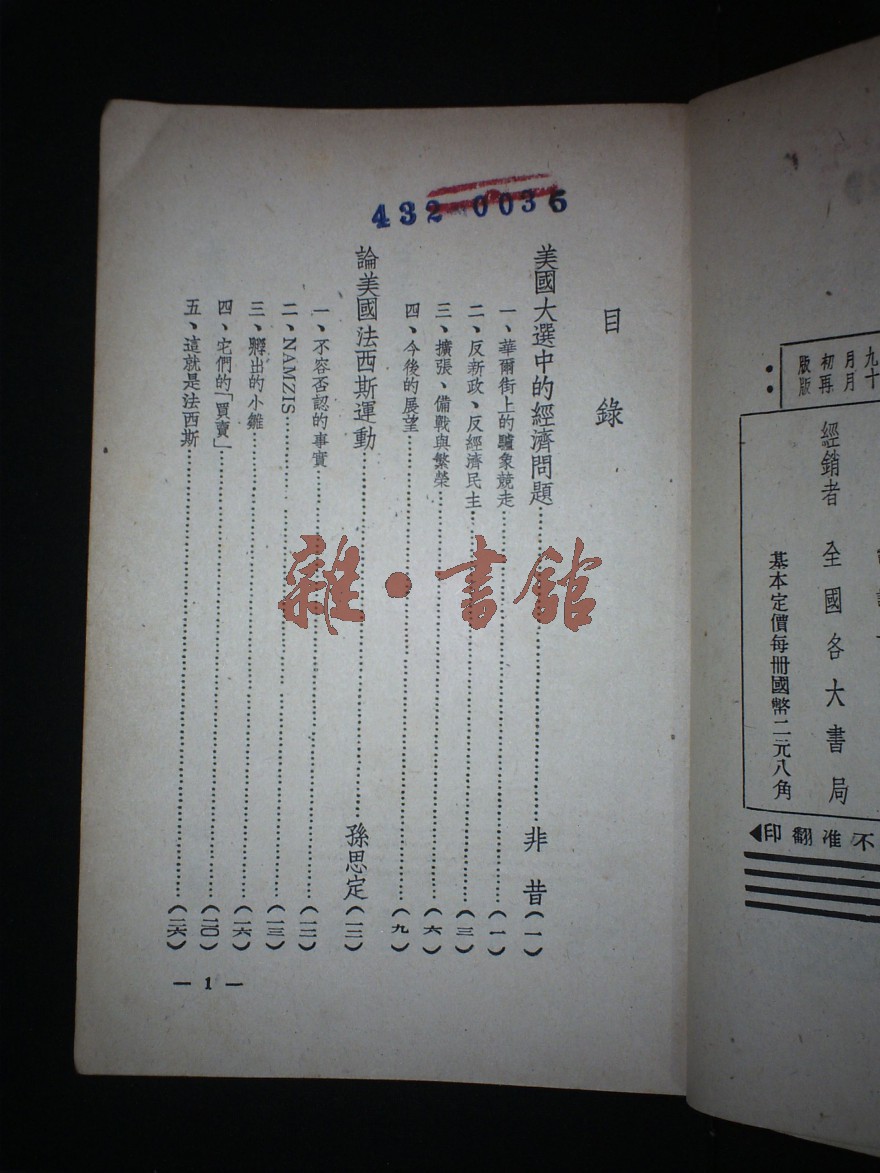 432 0035
目錄
美國大選中的經濟問題……非昔(一)
一、華爾街上的驢象競走……(一)
二、反新政、反經濟民主……(三)
三、擴張、備戰與繁榮……(六)
四、今後的展望……(九)
論美國法西斯運動……孫思定(一二)
一、不容否認的事實……(一二)
二、NAMZIS……(一三)
三、孵出的小雛……(一六)
四、它們的「買賣」……(二〇)
五、這就是法西斯……(二六)
— 1 —
雜·書館
九月初版
十月再版
經銷者 全國各大書局
基本定價每冊國幣二元八角
不准翻印